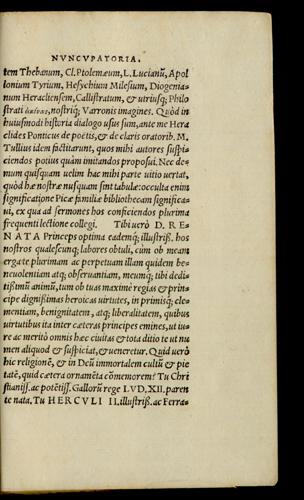 NVNCVPATORIA.
tem Thebanum, Cl. Ptolemæum, L. Lucianũ, Apol
lonium Tyrium, Hesychium Milesum, Diogenia-
num Heracliensem, Callistratum, & utriusq; Philo
strati nostriq; Varronis imagines. Quòd in
huiusmodi historia dialogo usus sum, ante me Hera
clides Ponticus de poëtis, & de claris oratorib. M.
Tullius idem factitarunt, quos mihi autores suspi-
ciendos potius quàm imitandos proposui. Nec de-
mum quisquam uelim hac mihi parte uitio uertat,
quòd hæ nostræ nusquam sint tabulæ: occulta enim
significatione Picæ familiæ bibliothecam significa-
ui, ex qua ad sermones hos conficiendos plurima
frequenti lectione collegi. Tibi uerò D. RE-
NATA Princeps optima eademq; illustriß. hos
nostros qualescunq; labores obtuli, cùm ob meam
erga te plurimam ac perpetuam illam quidem be-
neuolentiam atq; obseruantiam, meumq; tibi dedi-
tißimũ animũ, tum ob tuas maximè regias & prin-
cipe dignißimas heroicas uirtutes, in primisq; cle-
mentiam, benignitatem, atq; liberalitatem, quibus
uirtutibus ita inter cæteras principes emines, ut iu-
re ac meritò omnis hæc ciuitas & tota ditio te ut nu
men aliquod & suspiciat, & ueneretur. Quid uerò
hîc religionẽ, & in Deũ immortalem cultũ & pie
tatẽ, quid cætera ornamẽta cõmemorem? Tu Chri
stianiß. ac potẽtiß. Gallorũ rege LVD. XII. paren
te nata. Tu HERCVLI II. illustriß. ac Ferra-